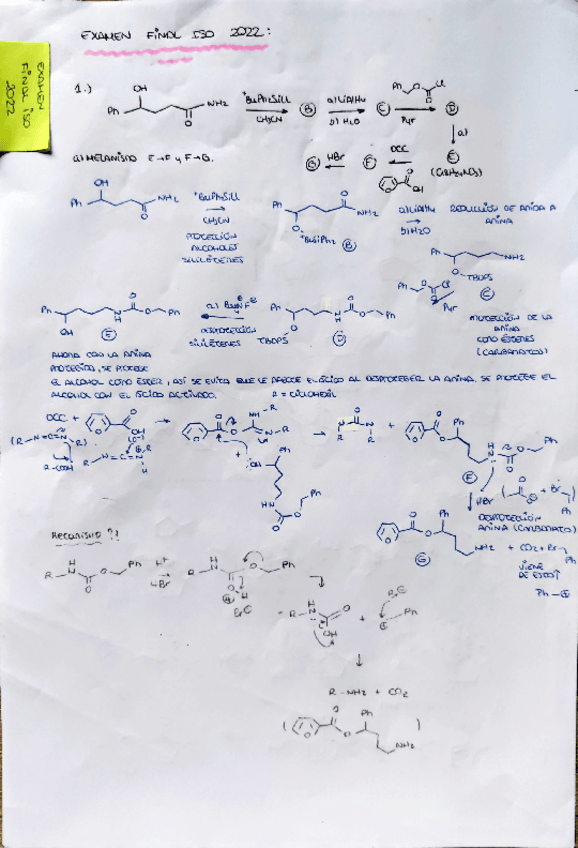 EXAMEN FINAL ISO 2022:
EXAMEN
FINAL ISO
2022
1.)
OH
Ph
NH2
O
tBuPh2SiCl
CH3CN
B
a) LiAlH4
b) H2O
C
Ph O Cl
O
Pyr
D
a)
E
DCC
F
HBr
G
O
OH
a) MECANISMO E→F y F→G.
OH
Ph
NH2
O
tBuPh2SiCl
CH3CN
PROTECCIÓN
ALCOHOLES
SILILÉTERES
Ph
O
NH2
O
tBuSiPh2
B
a) LiAlH4
b) H2O
REDUCCIÓN DE AMIDA A
AMINA
Ph
NH2
O
TBDPS
C
Ph O Cl
O
Pyr
PROTECCIÓN DE LA
AMINA
COMO ÉSTERES
(CARBAMATOS)
Ph
O
TBDPS
N
H
O
O Ph
D
a) Bu4NF
DESPROTECCIÓN
SILILÉTERES
Ph
OH
N
H
O
O Ph
E
AHORA CON LA AMINA
PROTEGIDA, SE PROTEGE
EL ALCOHOL COMO ÉSTER, ASÍ SE EVITA QUE LE AFECTE EL ÁCIDO AL DESPROTEGER LA AMINA. SE PROTEGE EL
ALCOHOL CON EL ÁCIDO ACTIVADO.
R = CICLOHEXIL
DCC +
(R-N=C=N-R)
R-COOH
F
HBr
DESPROTECCIÓN
AMINA (CARBAMATO)
G
NH2 + CO2 + Br
Ph
VIENE
DE ESTO?
Ph
MECANISMO ??
R
N
H
O
O
Ph
H+
HBr
R-NH2 + CO2
(
O
Ph
NH2
)